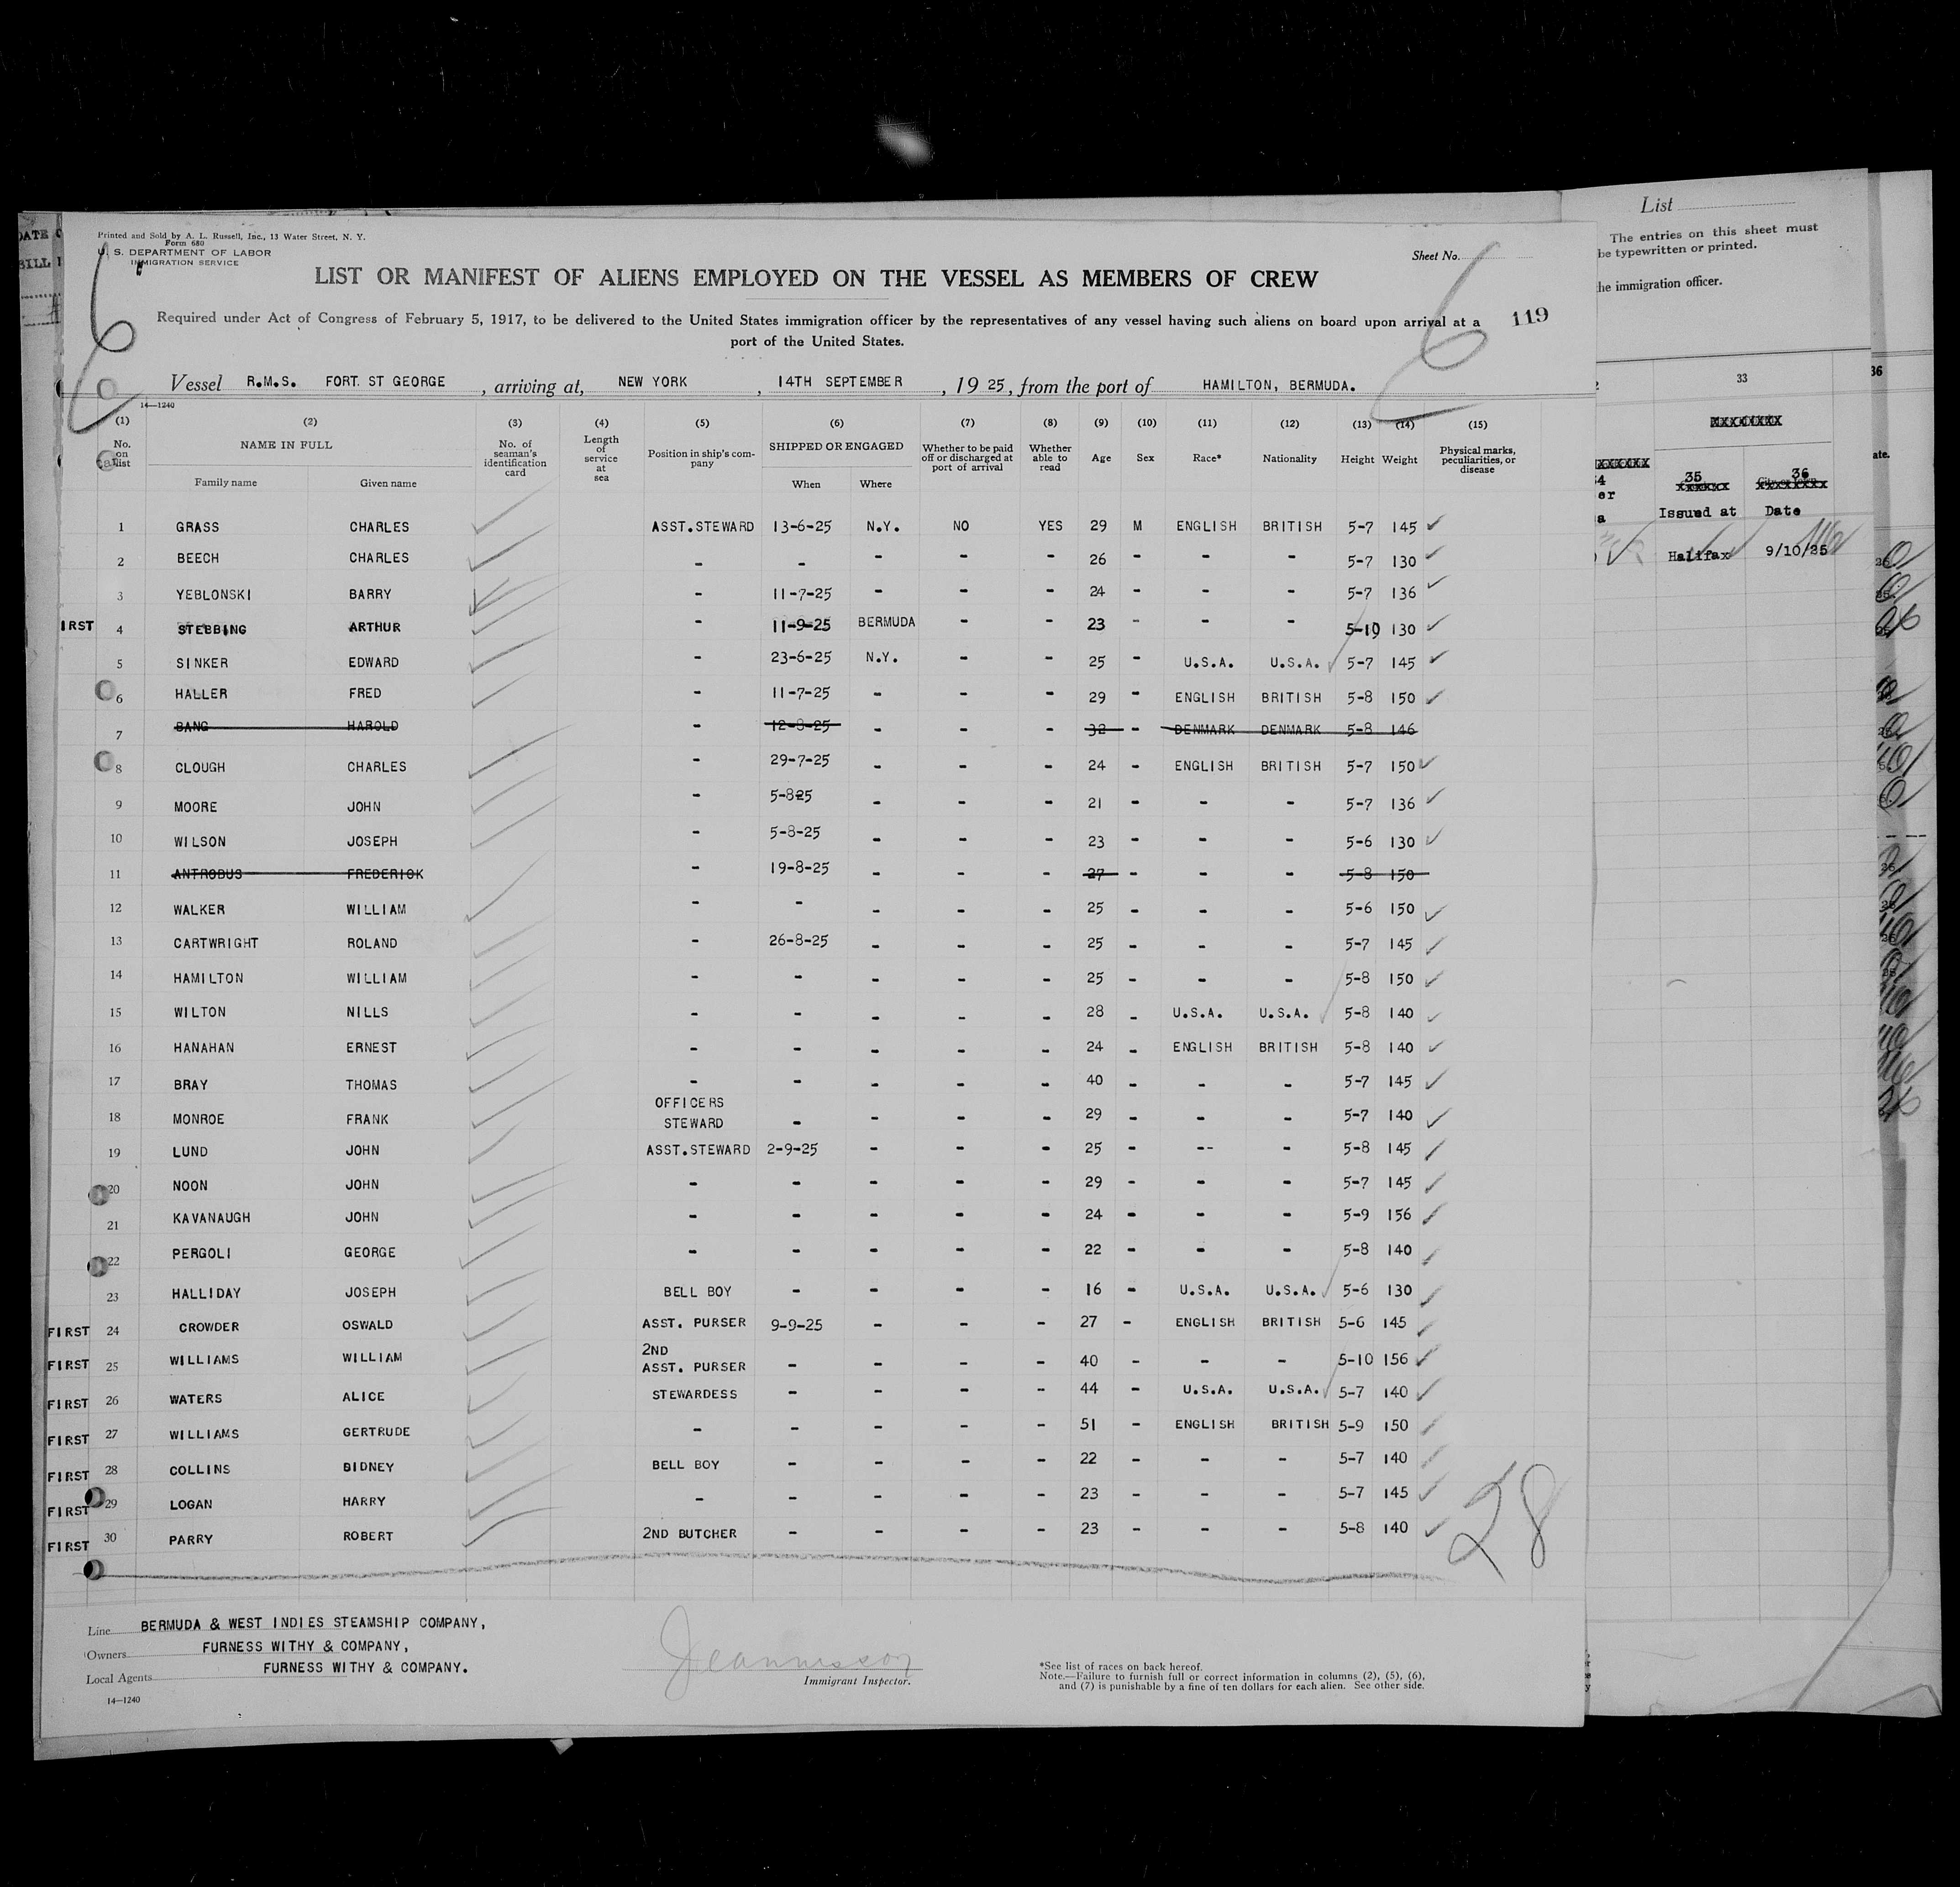 Printed and Sold by A. L. Russell, Inc., 13 Water Street, N. Y.
Form 680
U. S. DEPARTMENT OF LABOR
IMMIGRATION SERVICE
Sheet No.
6
6
119
LIST OR MANIFEST OF ALIENS EMPLOYED ON THE VESSEL AS MEMBERS OF CREW
Required under Act of Congress of February 5, 1917, to be delivered to the United States immigration officer by the representatives of any vessel having such aliens on board upon arrival at a
port of the United States.
Vessel R.M.S. FORT. ST GEORGE, arriving at, NEW YORK, 14TH SEPTEMBER, 19 25, from the port of HAMILTON, BERMUDA.
14—1240
(1) (2) (3) (4) (5) (6) (7) (8) (9) (10) (11) (12) (13) (14) (15)
No. on list NAME IN FULL Family name Given name No. of seaman's identification card Length of service at sea Position in ship's company SHIPPED OR ENGAGED When Where Whether to be paid off or discharged at port of arrival Whether able to read Age Sex Race* Nationality Height Weight Physical marks, peculiarities, or disease
1 GRASS CHARLES ASST.STEWARD 13-6-25 N.Y. NO YES 29 M ENGLISH BRITISH 5-7 145
2 BEECH CHARLES - - - - - 26 - - - 5-7 130
3 YEBLONSKI BARRY - 11-7-25 - - - 24 - - - 5-7 136
IRST 4 STEBBING ARTHUR - 11-9-25 BERMUDA - - 23 - - - 5-10 130
5 SINKER EDWARD - 23-6-25 N.Y. - - 25 - U.S.A. U.S.A. 5-7 145
6 HALLER FRED - 11-7-25 - - - 29 - ENGLISH BRITISH 5-8 150
7 BANG HAROLD - 12-8-25 - - - 32 - DENMARK DENMARK 5-8 146
8 CLOUGH CHARLES - 29-7-25 - - - 24 - ENGLISH BRITISH 5-7 150
9 MOORE JOHN - 5-825 - - - 21 - - - 5-7 136
10 WILSON JOSEPH - 5-8-25 - - - 23 - - - 5-6 130
11 ANTROBUS FREDERICK - 19-8-25 - - - 27 - - - 5-8 150
12 WALKER WILLIAM - - - - - 25 - - - 5-6 150
13 CARTWRIGHT ROLAND - 26-8-25 - - - 25 - - - 5-7 145
14 HAMILTON WILLIAM - - - - - 25 - - - 5-8 150
15 WILTON NILLS - - - - - 28 - U.S.A. U.S.A. 5-8 140
16 HANAHAN ERNEST - - - - - 24 - ENGLISH BRITISH 5-8 140
17 BRAY THOMAS - - - - - 40 - - - 5-7 145
18 MONROE FRANK OFFICERS STEWARD - - - - 29 - - - 5-7 140
19 LUND JOHN ASST.STEWARD 2-9-25 - - - 25 - -- - 5-8 145
20 NOON JOHN - - - - - 29 - - - 5-7 145
21 KAVANAUGH JOHN - - - - - 24 - - - 5-9 156
22 PERGOLI GEORGE - - - - - 22 - - - 5-8 140
23 HALLIDAY JOSEPH BELL BOY - - - - 16 - U.S.A. U.S.A. 5-6 130
FIRST 24 CROWDER OSWALD ASST. PURSER 9-9-25 - - - 27 - ENGLISH BRITISH 5-6 145
FIRST 25 WILLIAMS WILLIAM 2ND ASST. PURSER - - - - 40 - - - 5-10 156
FIRST 26 WATERS ALICE STEWARDESS - - - - 44 - U.S.A. U.S.A. 5-7 140
FIRST 27 WILLIAMS GERTRUDE - - - - - 51 - ENGLISH BRITISH 5-9 150
FIRST 28 COLLINS BIDNEY BELL BOY - - - - 22 - - - 5-7 140
FIRST 29 LOGAN HARRY - - - - - 23 - - - 5-7 145
FIRST 30 PARRY ROBERT 2ND BUTCHER - - - - 23 - - - 5-8 140
28
Line BERMUDA & WEST INDIES STEAMSHIP COMPANY,
Owners FURNESS WITHY & COMPANY,
Local Agents FURNESS WITHY & COMPANY.
14—1240
Immigrant Inspector.
*See list of races on back hereof.
Note.—Failure to furnish full or correct information in columns (2), (5), (6),
and (7) is punishable by a fine of ten dollars for each alien. See other side.
List
The entries on this sheet must
be typewritten or printed.
he immigration officer.
33
36
35 36
Issued at Date
Halifax 9/10/25